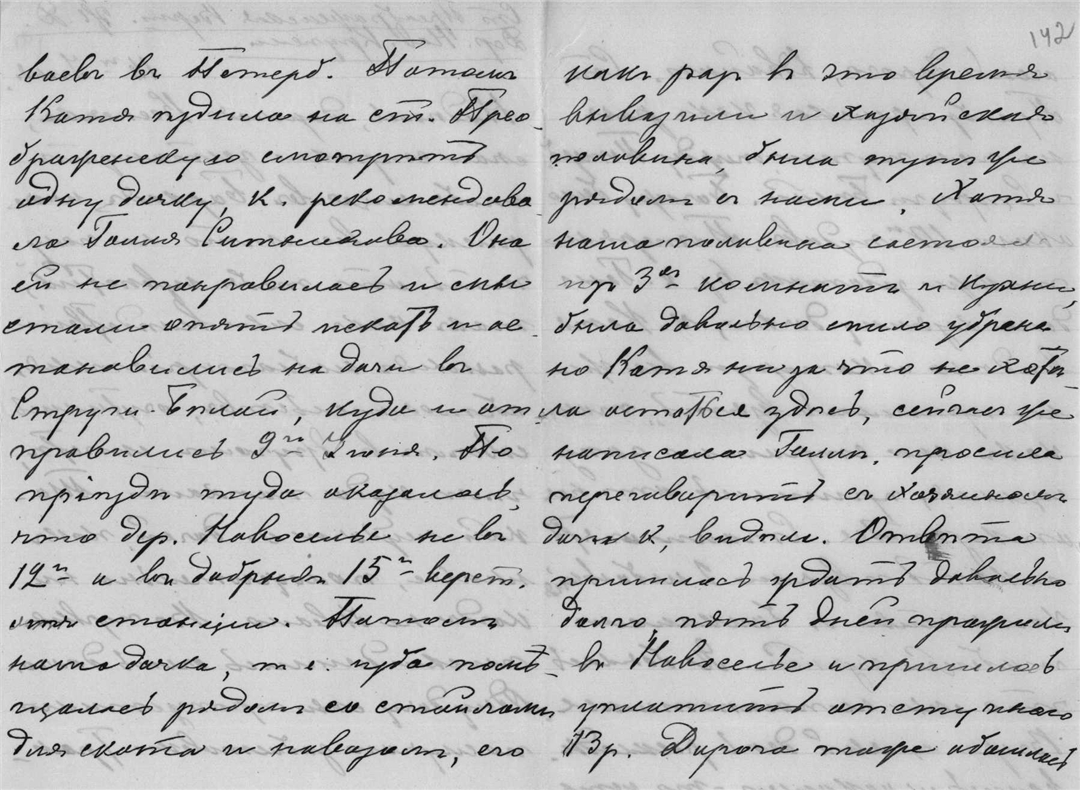 142
ваевъ въ Петерб. Потомъ
Катя ѣздила на ст. Прео-
браженскую смотрѣть
одну дачку, к. рекомендова-
ла Галля Ситникова. Она
ей не понравилась и мы
стали опять искать и ос-
тановились на дачи въ
Струги-Бѣлой, куда и от-
правились 9го Іюня. По
пріѣзди туда оказалось,
что дер. Новоселье не въ
12ти а въ добрыхъ 15ти верст.
отъ станціи. Потомъ
наша дачка, т. е. изба помѣ-
щалась рядомъ со стойлами
для скота и навозомъ, его
какъ разъ въ это время
вывозили и хозяйская
половина, была тутъ же
рядомъ съ нами. Хотя
наша половина состояла
изъ 3ех комнатъ и кухни,
была довольно мило убрана
но Катя ни за что не хотѣ-
ла остаться здѣсь, сейчасъ же
написала Галли, просила
переговорить съ хозяиномъ
дачи к, видѣли. Отвѣта
пришлось ждать довольно
долго, пять дней прожили
въ Новоселье и пришлось
уплатить отступного
13 р. Дорога тоже обошлась